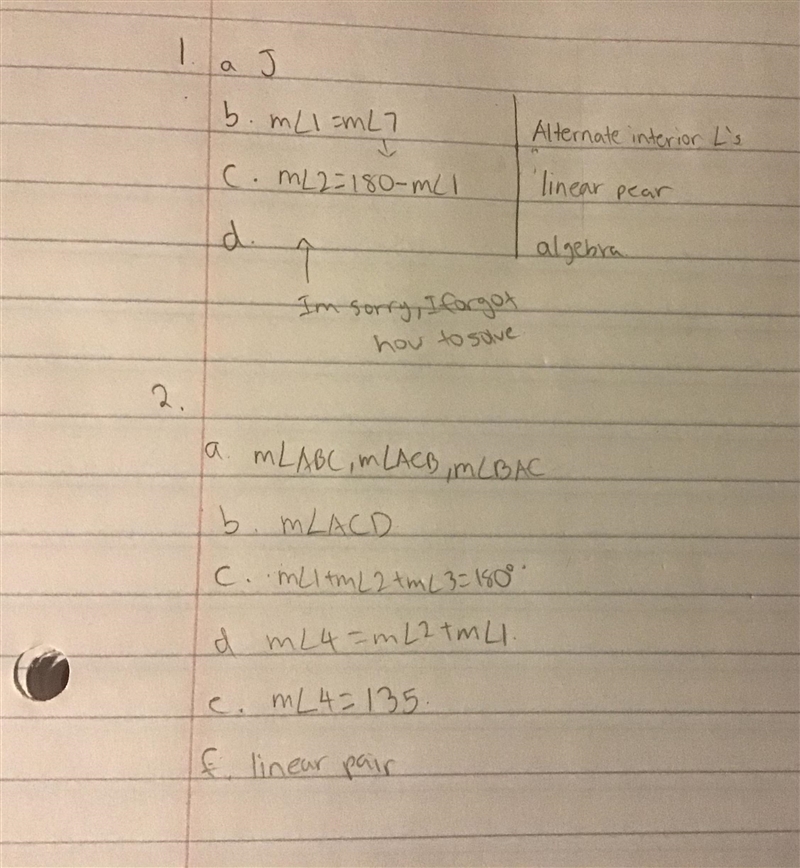 1. a J
b. m∠1=m∠7 Alternate interior ∠'s
↓
c. m∠2=180-m∠1 linear pear
d. algebra
↑
Im sorry, I forgot
how to solve
2.
a. m∠ABC, m∠ACB, m∠BAC
b. m∠ACD
c. m∠1+m∠2+m∠3=180°
d m∠4=m∠2+m∠1.
e. m∠4=135.
f. linear pair